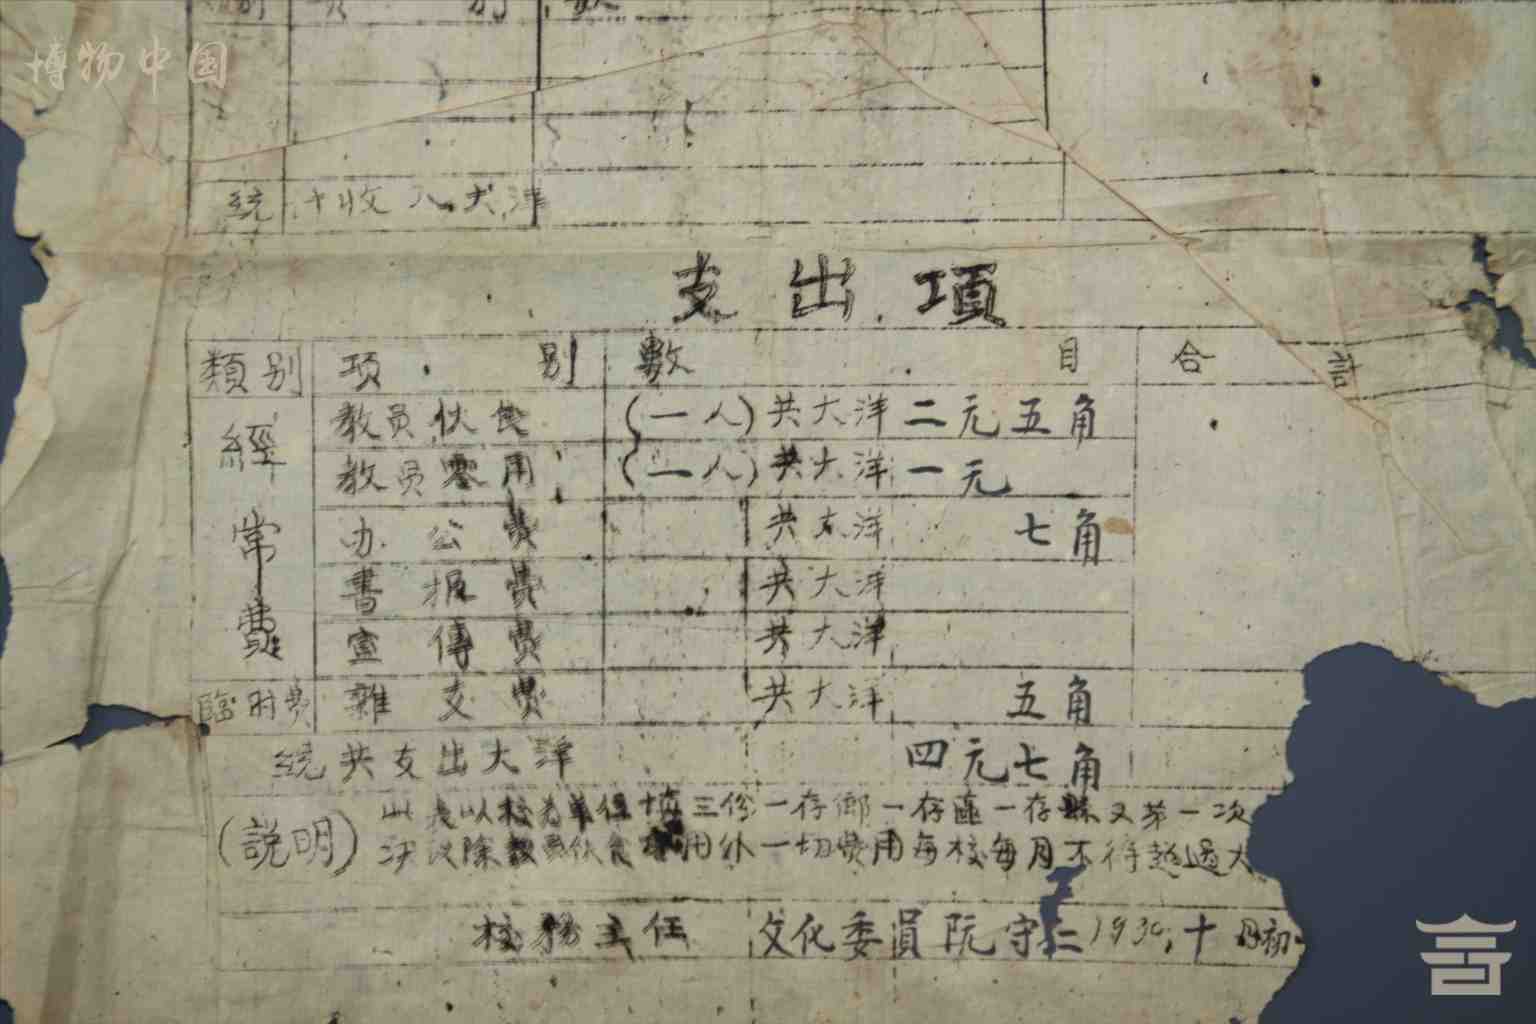 博物中国
類别 项 别 數
統計收入大洋
支出項
類别 项別 數目 合計
經常費
教员伙食 (一人)共大洋二元五角
教员零用 (一人)共大洋一元
办公费 共大洋 七角
書报費 共大洋
宣傳費 共大洋
臨时费 雜支費 共大洋 五角
統共支出大洋 四元七角
(説明) 此表以校为单位填三份一存鄉一存區一存縣又苐一次
決议除教员伙食零用外一切费用每校每月不得超過大
校務主任 文化委員阮守仁1930,十月初